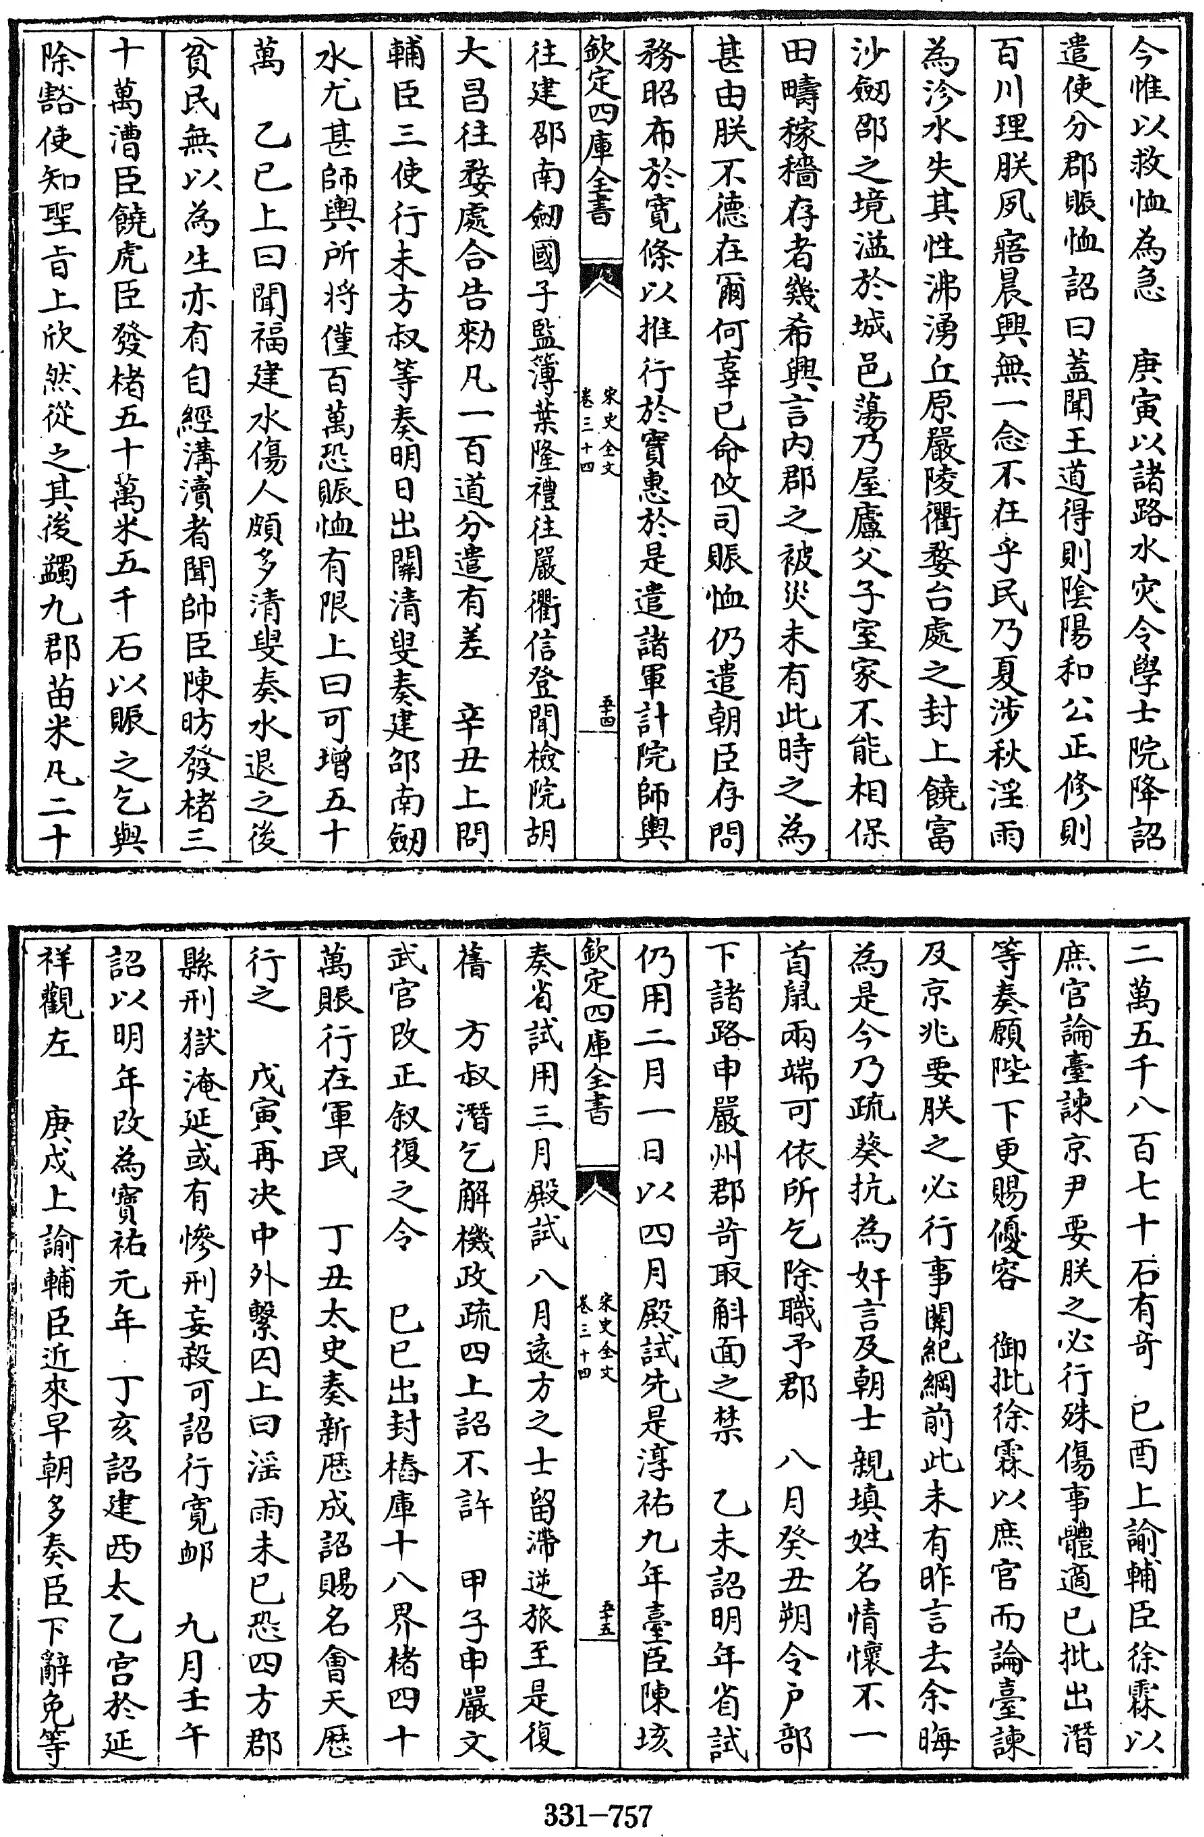 今惟以救恤為急　庚寅以諸路水灾令學士院降詔
遣使分郡賑恤詔曰蓋聞王道得則陰陽和公正修則
百川理朕夙寤晨興無一念不在乎民乃夏涉秋淫雨
為沴水失其性沸湧丘原嚴陵衢婺台處之封上饒富
沙劒邵之境溢於城邑蕩乃屋廬父子室家不能相保
田疇稼穡存者幾希興言内郡之被災未有此時之為
甚由朕不德在爾何辜已命攸司賑恤仍遣朝臣存問
務昭布於寛條以推行於實惠於是遣諸軍計院師輿
欽定四庫全書
宋史全文
卷三十四
五十四
往建邵南劒國子監簿葉隆禮往嚴衢信登聞檢院胡
大昌往婺處合告勑凡一百道分遣有差　辛丑上問
輔臣三使行未方叔等奏明日出關清叟奏建邵南劒
水尤甚師輿所将僅百萬恐賑恤有限上曰可增五十
萬　乙已上曰聞福建水傷人頗多清叟奏水退之後
貧民無以為生亦有自經溝瀆者聞帥臣陳昉發楮三
十萬漕臣饒虎臣發楮五十萬米五千石以賑之乞與
除豁使知聖旨上欣然從之其後蠲九郡苗米凡二十
二萬五千八百七十石有奇　己酉上諭輔臣徐霖以
庶官論臺諫京尹要朕之必行殊傷事體適已批出潛
等奏願陛下更賜優容　御批徐霖以庶官而論臺諫
及京兆要朕之必行事關紀綱前此未有昨言去余晦
為是今乃疏葵抗為奸言及朝士親填姓名情懷不一
首鼠兩端可依所乞除職予郡　八月癸丑朔令户部
下諸路申嚴州郡苛取斛面之禁　乙未詔明年省試
仍用二月一日以四月殿試先是淳祐九年臺臣陳垓
欽定四庫全書
宋史全文
卷三十四
五十五
奏省試用三月殿試八月遠方之士留滯逆旅至是復
舊　方叔潛乞解機政疏四上詔不許　甲子申嚴文
武官改正叙復之令　已巳出封樁庫十八界楮四十
萬賑行在軍民　丁丑太史奏新厯成詔賜名會天厯
行之　戊寅再决中外繫囚上曰淫雨未已恐四方郡
縣刑獄淹延或有慘刑妄殺可詔行寛卹　九月壬午
詔以明年改為寶祐元年　丁亥詔建西太乙宫於延
祥觀左　庚戌上諭輔臣近來早朝多奏臣下辭免等
331-757